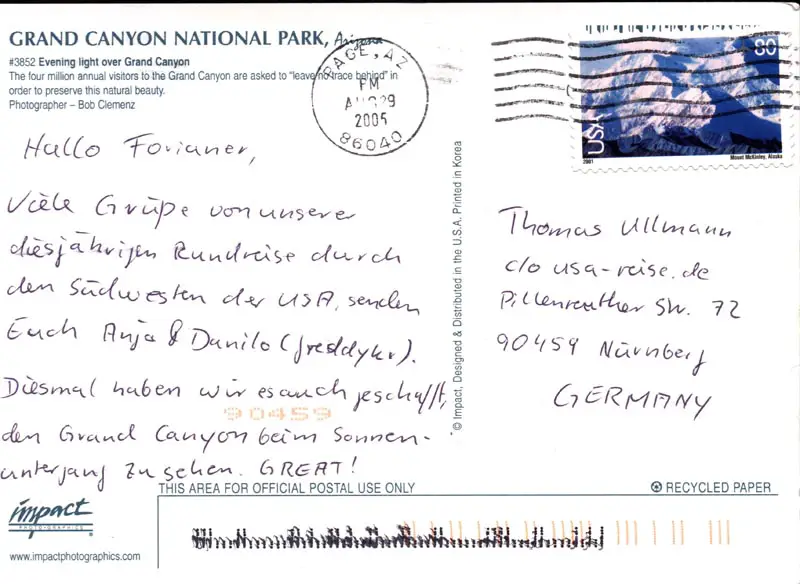 GRAND CANYON NATIONAL PARK, Arizona
#3852 Evening light over Grand Canyon
The four million annual visitors to the Grand Canyon are asked to "leave no trace behind" in
order to preserve this natural beauty.
Photographer – Bob Clemenz
PAGE, AZ
PM
AUG 29
2005
86040
80
USA
2001
Mount McKinley, Alaska
Hallo Forianer,
Viele Grüße von unserer
diesjährigen Rundreise durch
den Südwesten der USA, senden
Euch Anja & Danilo (freddykr).
Diesmal haben wir es auch geschafft,
den Grand Canyon beim Sonnen-
untergang zu sehen. GREAT!
90459
© Impact, Designed & Distributed in the U.S.A. Printed in Korea
Thomas Ullmann
c/o usa-reise.de
Pillenreuther Str. 72
90459 Nürnberg
GERMANY
THIS AREA FOR OFFICIAL POSTAL USE ONLY
RECYCLED PAPER
impact
PHOTOGRAPHICS
www.impactphotographics.com